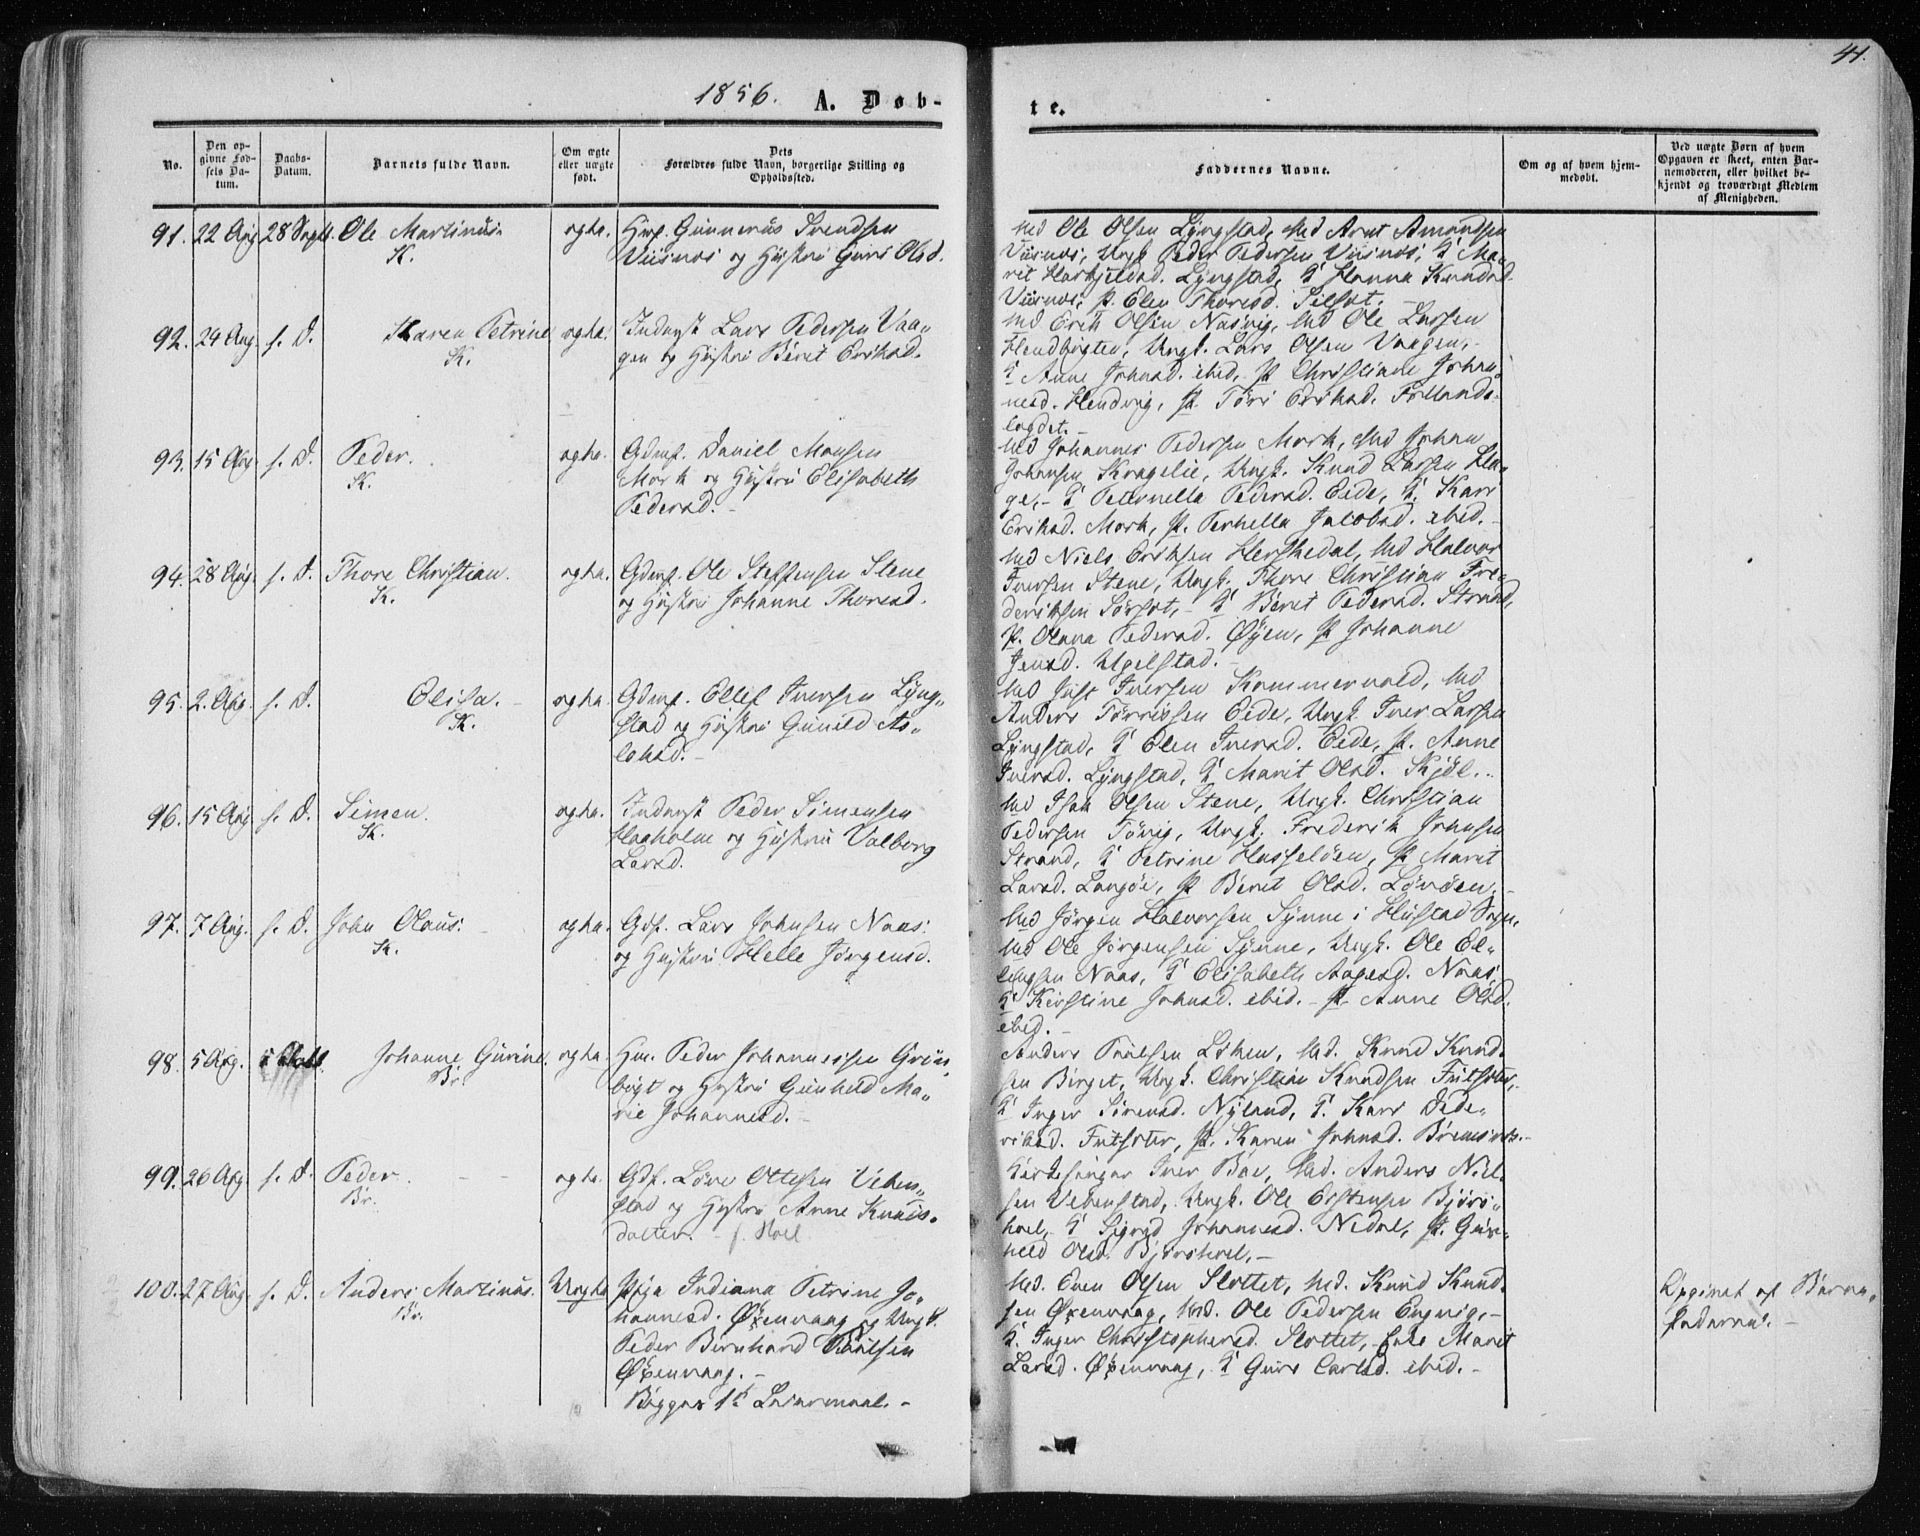 41.
1856. A. Døb-
te.
No.
Den op-
givne Fød-
sels Da-
tum.
Daabs-
Datum.
Barnets fulde Navn.
Om ægte
eller uægte
født.
Dets
Forældres fulde Navn, borgerlige Stilling og
Opholdssted.
Faddernes Navne.
Om og af hvem hjem-
medøbt.
Ved uægte Børn af hvem
Opgaven er skeet, enten Bar-
nemoderen, eller hvilket be-
kjendt og troværdigt Medlem
af Menigheden.
91. 22 Aug 28 Septb. Ole Martinus.
K.
ægte.
Gunnerus Svendsen
Viisnæs og Hustru Guri Olsd.
Md Ole Olsen Lyngstad, Md Arnt Amundsen
Viisnæs, Ungk. Peder Pedersen Viisnæs, K Ma-
rit Lyngstad, K Hanna Knudsd.
Viisnæs, P. Elen Thoresd. Silset.
92. 24 Aug. s. D. Karen Petrine
K.
ægte.
Inderst Lars Pedersen Vaa-
gen og Hustru Berit Eriksd.
Md Erik Olsen Nasvig, Md Ole Larssen
Ungk. Lars Olsen Vaagen,
K Anne Johnsd. ibid, P Christiane Johan-
nesd. Hendvig, P. Eriksd.
93. 15 Aug. s. D. Peder.
K.
ægte.
Gdmd. Daniel Monsen
Mork og Hustru Elisabeth
Pedersd.
Md Johannes Pedersen Mork, Md Johan
Johansen Ungk. Knud Larsen Ha-
ge, K Peternella Pedersd. Eide, K. Kari
Eriksd. Mork, P. Pernella Jacobsd. ibid.
94. 28 Aug. s. D. Thore Christian.
K.
ægte.
Gdmd. Ole Steffensen Stene
og Hustru Johanne Thoresd.
Md Niels Eriksen Hershedal, Md Halvor
Iversen Stene, Ungk. Thore Christian Fre-
deriksen Sørset, K Berit Pedersd. Strand,
P. Olava Pedersd. Øyen, P Johanne
Jensd. Ugelstad.
95. 2. Aug. s. D. Elisa.
K.
ægte.
Gdmd. Ellef Iversen Lyng-
stad og Hustru Gunild As-
laksd.
Md Just Iversen Md
Anders Eide, Ungk. Iver Larsen
Lyngstad, K Elen Iversd. Eide, P. Anne
Iversd. Lyngstad, K Marit Olsd. Kjøl.
96. 15 Aug s. D. Simen.
K.
ægte.
Inderst Peder Simensen
Haaholm og Hustru Valborg
Larsd.
Md Isak Olsen Stene, Ungk. Christian
Pedersen Ungk. Frederik Johnsen
Strand, K Petrine Hasseløen, P Marit
Larsd. Langøi, P Berit Olsd. Løvøen.
97. 7 Aug. s. D. John Olaus.
K.
ægte.
Gdf. Lars Johnsen Naas
og Hustru Helle Jørgensd.
Md Jørgen Halvorsen Synne i Hustad Sogn,
Md Ole Jørgensen Synne, Ungk. Ole El-
lingsen Naas, K Elisabeth Aagesd. Naas
K Kirstine Johnsd. ibid. P Anne Olsd.
ibid.
98. 5 Aug. Johanne Gurine.
Br.
ægte.
Hm. Peder Johannessen
og Hustru Gunhild Ma-
rie Johannesd.
Anders Paulsen Løken, Md. Knud Knud-
sen Ungk. Christian Knudsen
K Inger Sørensd. Nyland, K. Kari Dide-
riksd. P. Karen Johnsd. Bremsnes.
99. 26 Aug. s. D. Peder.
Br.
ægte.
Gdf. Ottesen Veben-
stad og Hustru Anne Knuds-
datter.
Kirkesanger Iver Bae, Md. Anders Niel-
sen Vebenstad, Ungk. Ole Bjørs-
hol, K Sigrid Johannesd. Nedal, P. Gun-
hild Olsd. Bjørshol.
100. 27 Aug. s. D. Anders Martinus.
Br.
Uægte
Pige Indiana Petrine Jo-
hannesd. Øxenvaag og Ungk.
Peder Bernhard Paulsen
Øxenvaag.
Begges 1te Leiermaal.
Md. Even Olsen Slottet, Md. Knud Knud-
sen Øxenvaag, Md. Ole Pedersen Engvig,
K. Inger Christophersd. Slottet, Enke Marit
Larsd. Øxenvaag, K Guri Carlsd. ibid.
Opgivet af Barne-
faderen.